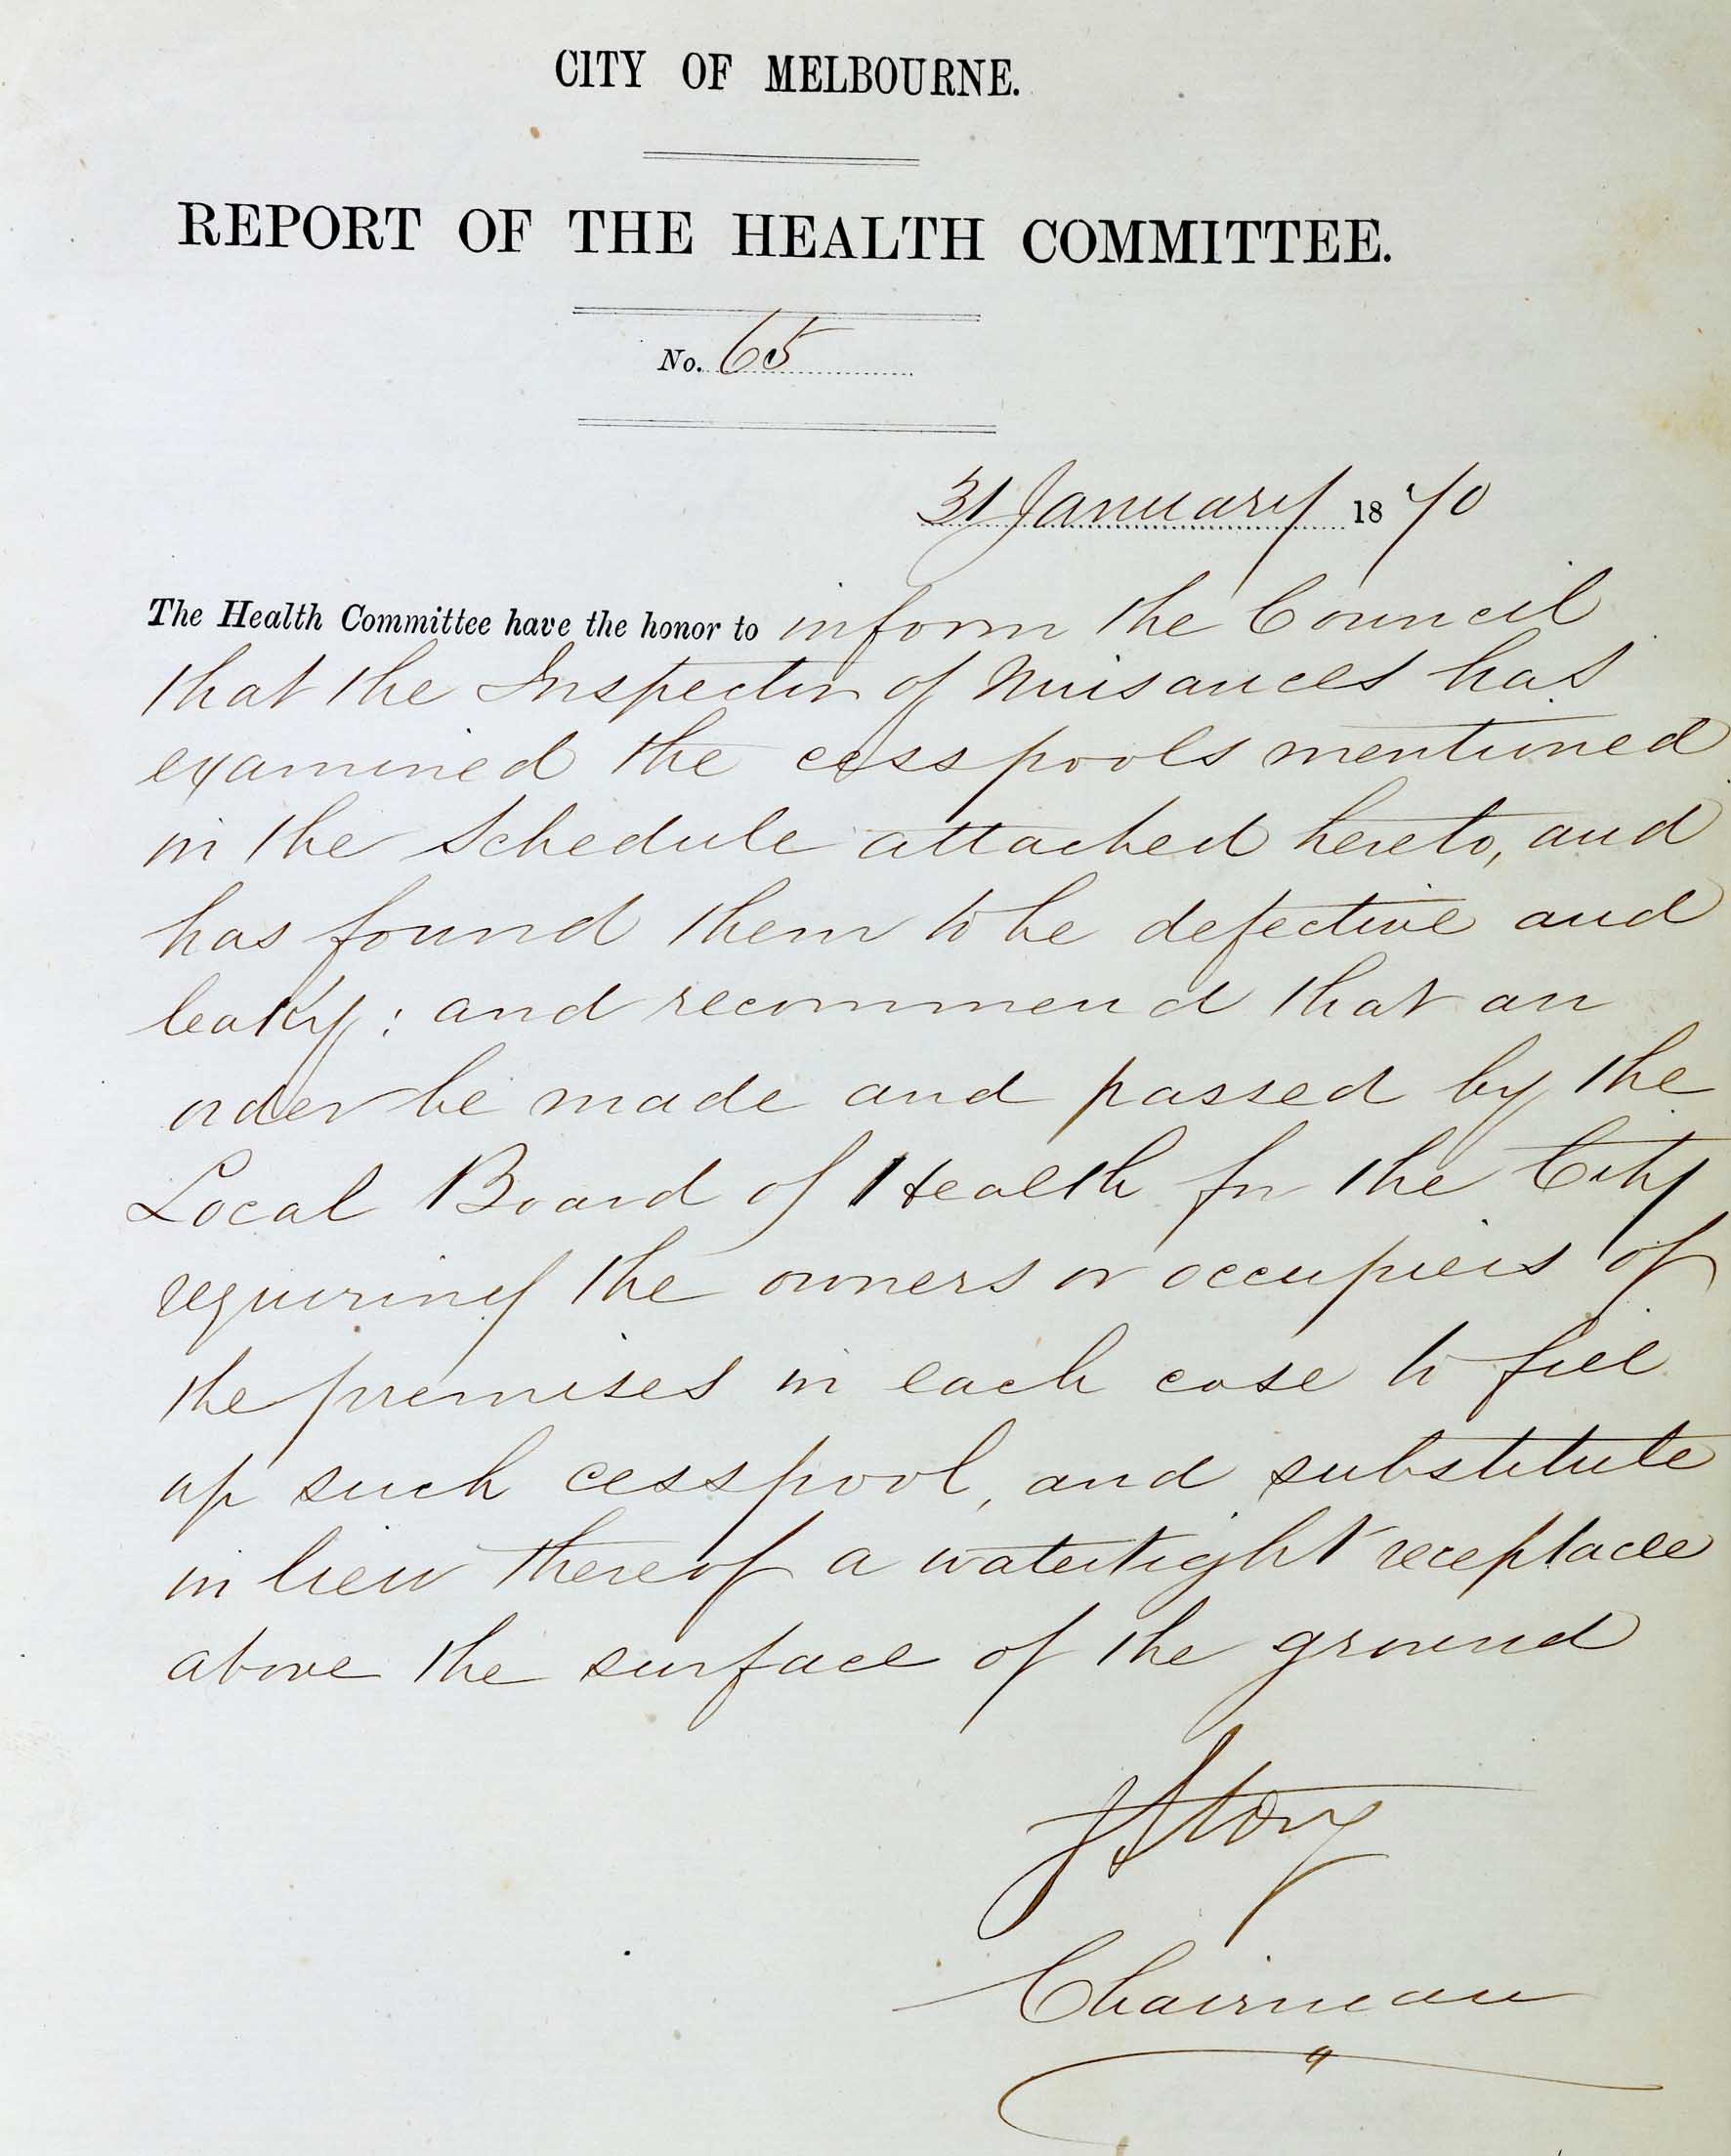 CITY OF MELBOURNE.
REPORT OF THE HEALTH COMMITTEE.
No. 65
31 January 1870
The Health Committee have the honor to inform the Council
that the Inspector of Nuisances has
examined the cesspools mentioned
in the Schedule attached hereto, and
has found them to be defective and
leaky; and recommend that an
order be made and passed by the
Local Board of Health for the City
requiring the owners or occupiers of
the premises in each case to fill
up such cesspool, and substitute
in lieu thereof a watertight receptacle
above the surface of the ground
J Story
Chairman